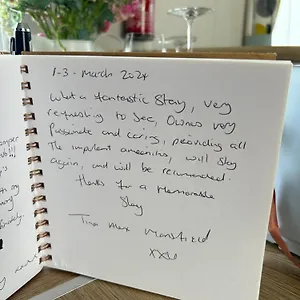 1-3 - March 2024
What a fantastic Stay, very
refreshing to see, Owners very
Passionate and caring, providing all
The important amenities, will stay
again, and will be recommended.
Thanks for a Memorable
Stay
Mansfield
xxx